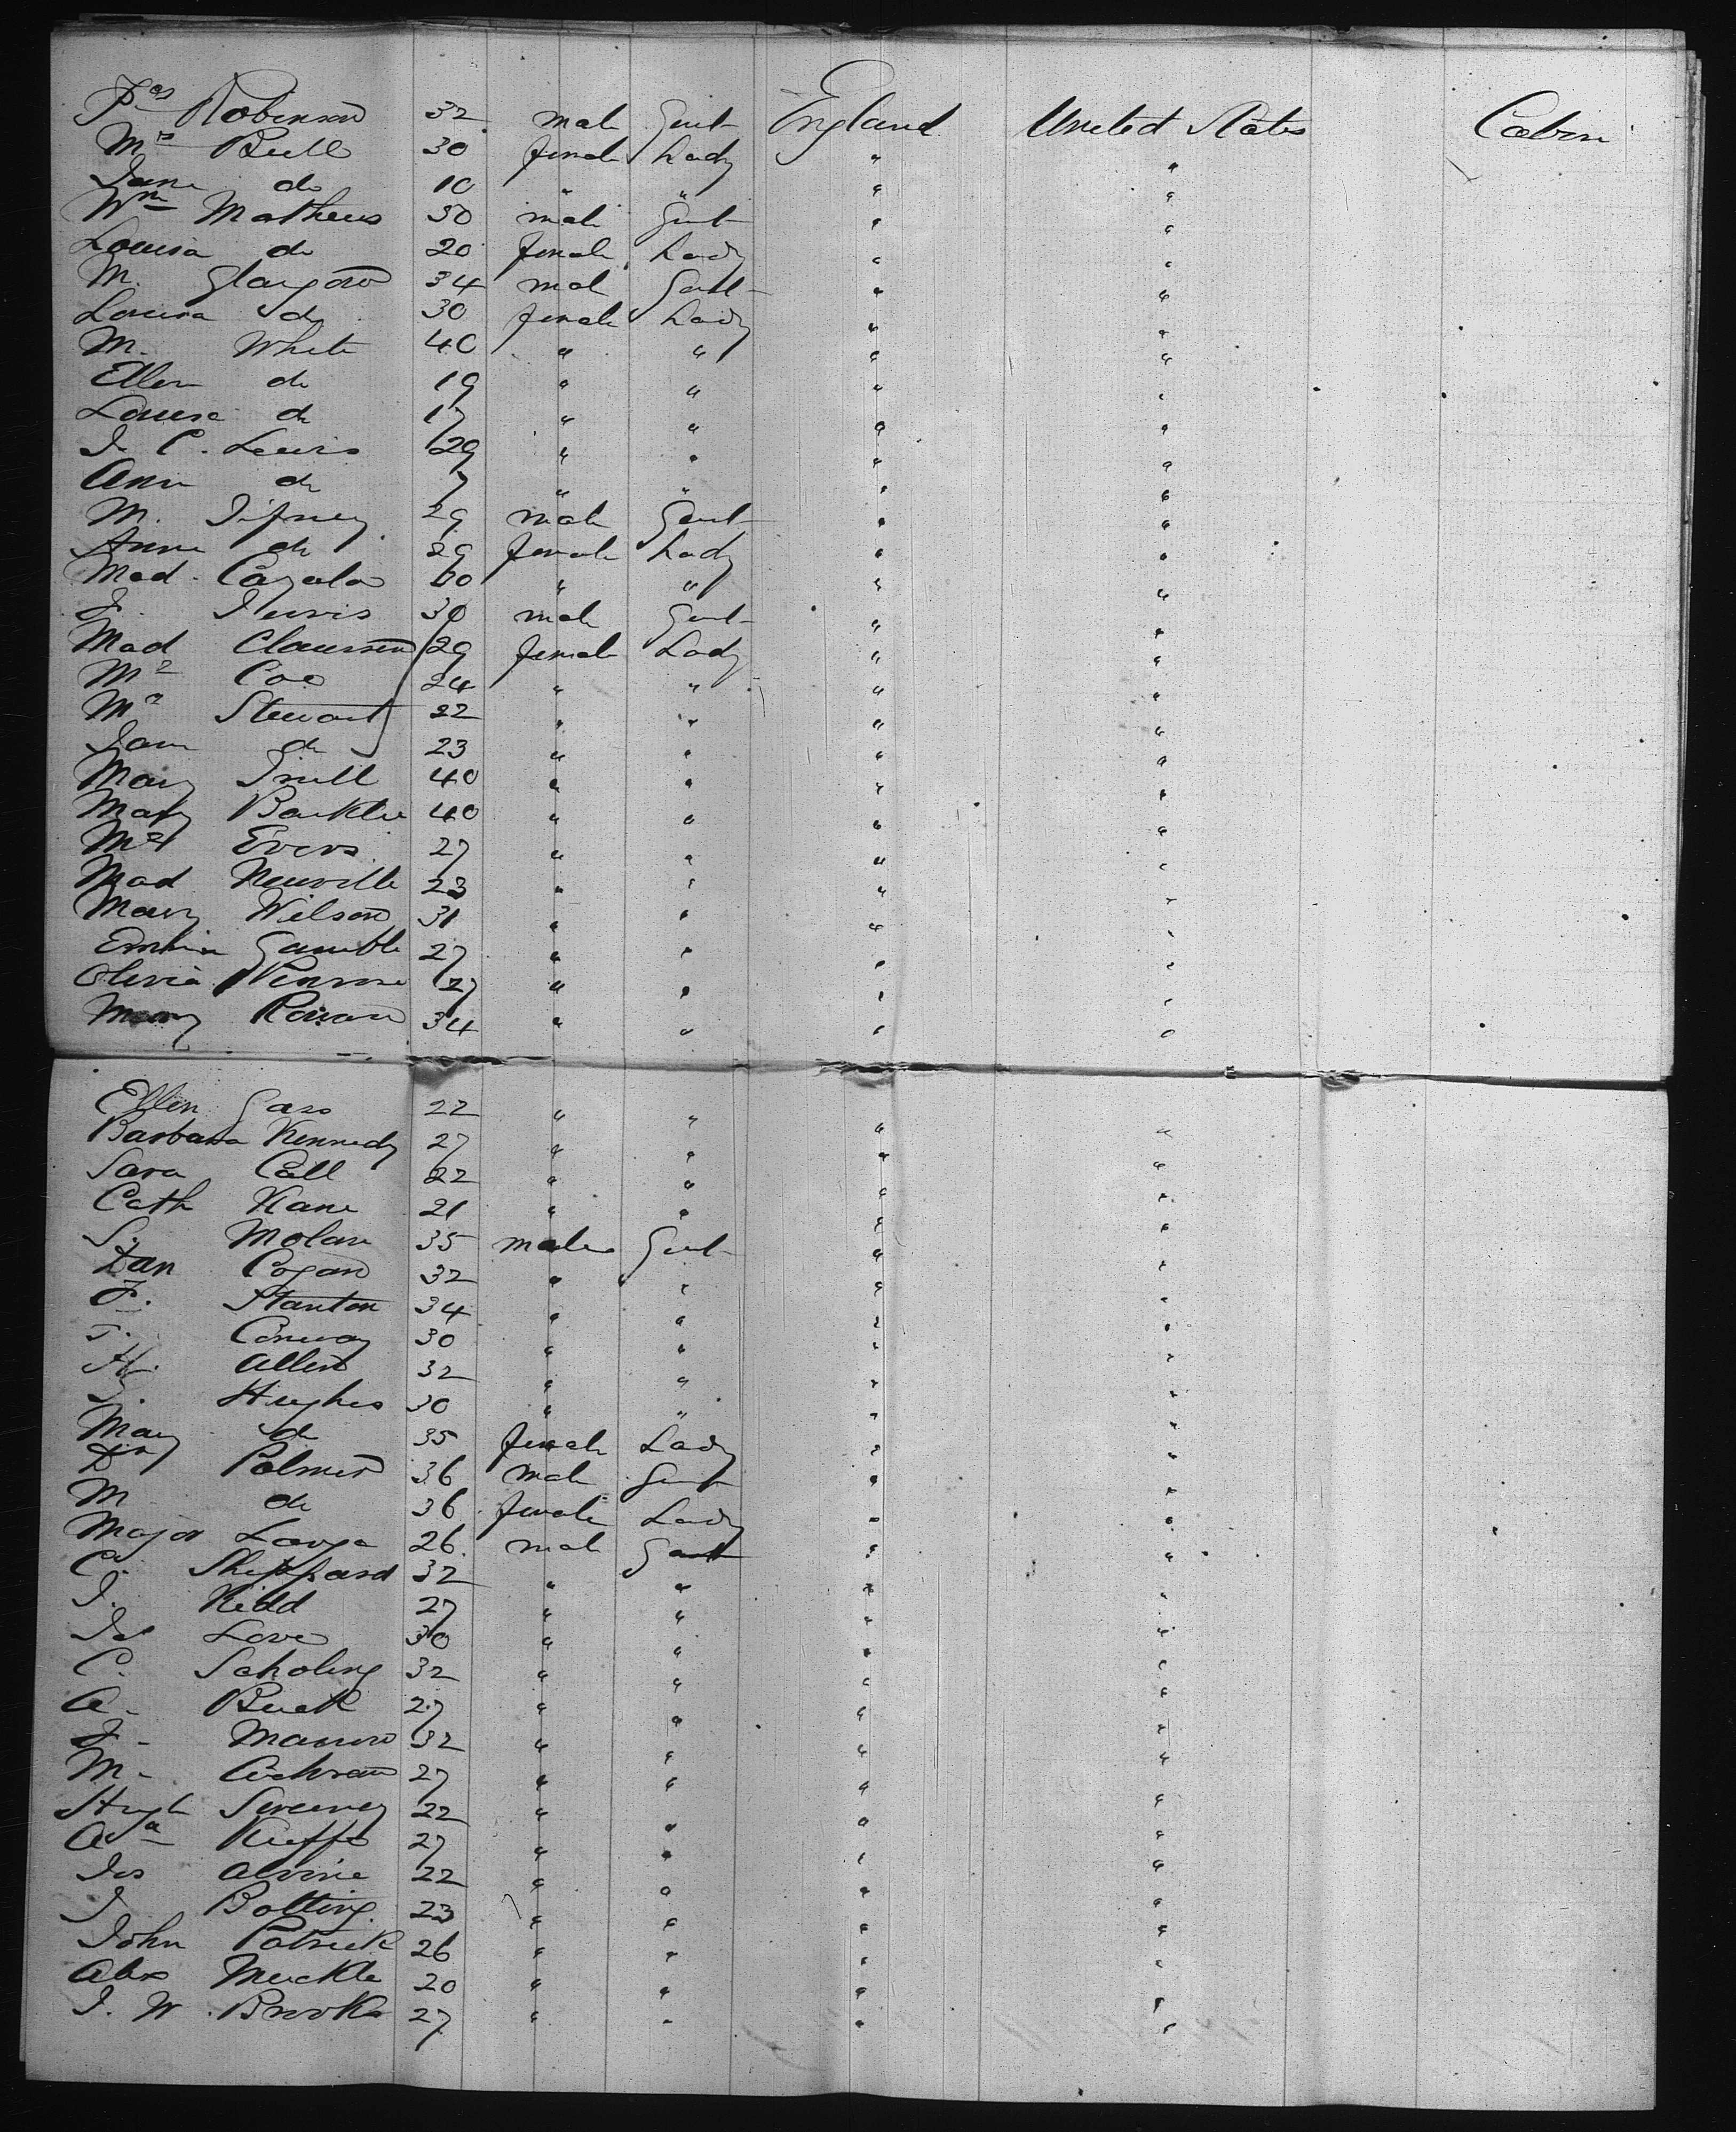 Jas Robinson 32 male Gent England United States Cabin
Mrs Bell 30 female Lady " "
Jane do 10 " " " "
Wm Mathews 50 male Gent " "
Louisa do 20 female Lady " "
M. Glasgow 34 male Gent " "
Louisa do 30 female Lady " "
M. White 40 " " " "
Ellen do 19 " " " "
Louisa do 17 " " " "
J. C. Lewis 29 " " " "
Ann do 7 " " " "
M. 29 male Gent " "
Anne do 29 female Lady " "
Mad. Cazala 60 " " " "
J. 30 male Gent " "
Mad Claussen 29 female Lady " "
Mrs Coe 24 " " " "
Mrs Stewart 22 " " " "
Jane do 23 " " " "
Mary 40 " " " "
Mary 40 " " " "
Evers 27 " " " "
Mad Neuville 23 " " " "
Mary Wilson 31 " " " "
Gamble 27 " " " "
Olivia Penrose 27 " " " "
Mary Rowan 34 " " " "
Ellen 22 " " " "
Barbara Kennedy 27 " " " "
Sara Call 22 " " " "
Cath Kane 21 " " " "
S. Molan 35 male Gent " "
Dan Cogan 32 " " " "
F. Stanton 34 " " " "
T. Conway 30 " " " "
H. Allen 32 " " " "
J. Hughes 30 " " " "
Mary do 35 female Lady " "
Dr Palmer 36 male Gent " "
M do 36 female Lady " "
Major 26 male Gent " "
C. Sheppard 32 " " " "
J. Kidd 27 " " " "
Js Love 30 " " " "
C. Scholing 32 " " " "
A. Buck 27 " " " "
J. 32 " " " "
M. Cochran 27 " " " "
Hugh Sweeney 22 " " " "
27 " " " "
Jos Alvine 22 " " " "
J Botting 23 " " " "
John Patrick 26 " " " "
Alex Muckle 20 " " " "
J. W. Brooks 27 " " " "